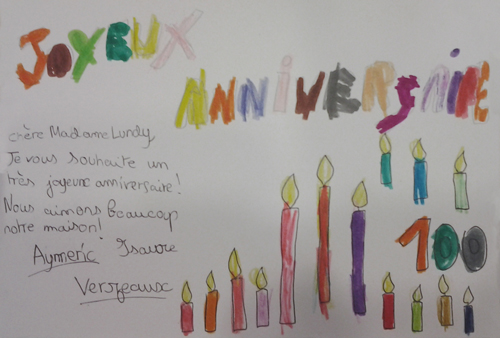 JOYEUX
ANNIVERSAIRE
chère Madame Lundy,
Je vous souhaite un
très joyeux anniversaire!
Nous aimons beaucoup
notre maison!
Aymeric Isaure
100